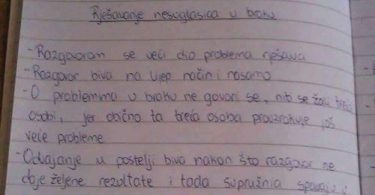 Rješavanje nesuglasica u braku
- Razgovorom se veći dio problema rješava
- Razgovor biva na lijep način i nasamo
- O problemima u braku ne govori se, niti se žali trećoj
osobi, jer obično ta treća osoba prouzrokuje još
veće probleme
- Odvajanje u postelji biva nakon što razgovor ne
daje željene rezultate i tada supružnici spavaju